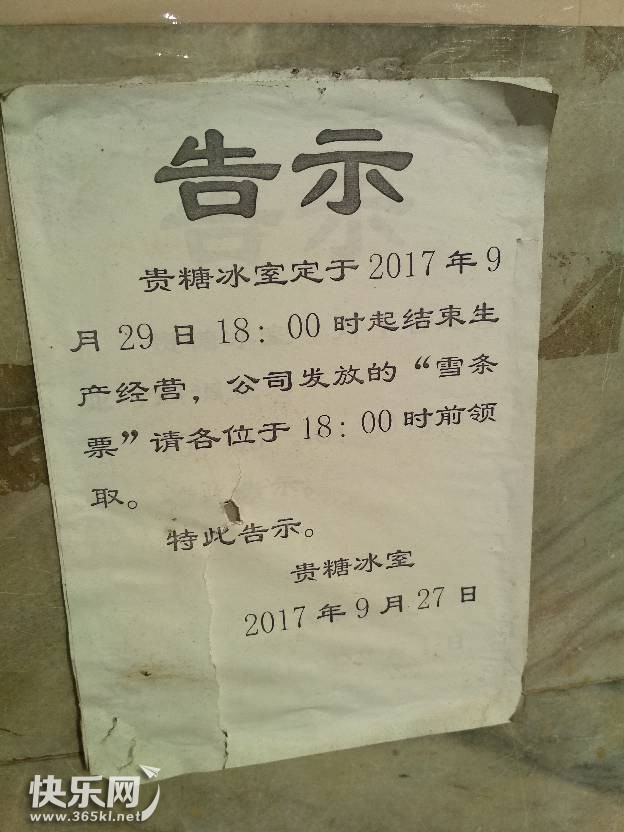 告示
贵糖冰室定于 2017 年 9
月 29 日 18：00 时起结束生
产经营，公司发放的“雪条
票”请各位于 18：00 时前领
取。
特此告示。
贵糖冰室
2017 年 9 月 27 日
快乐网
www.365kl.net